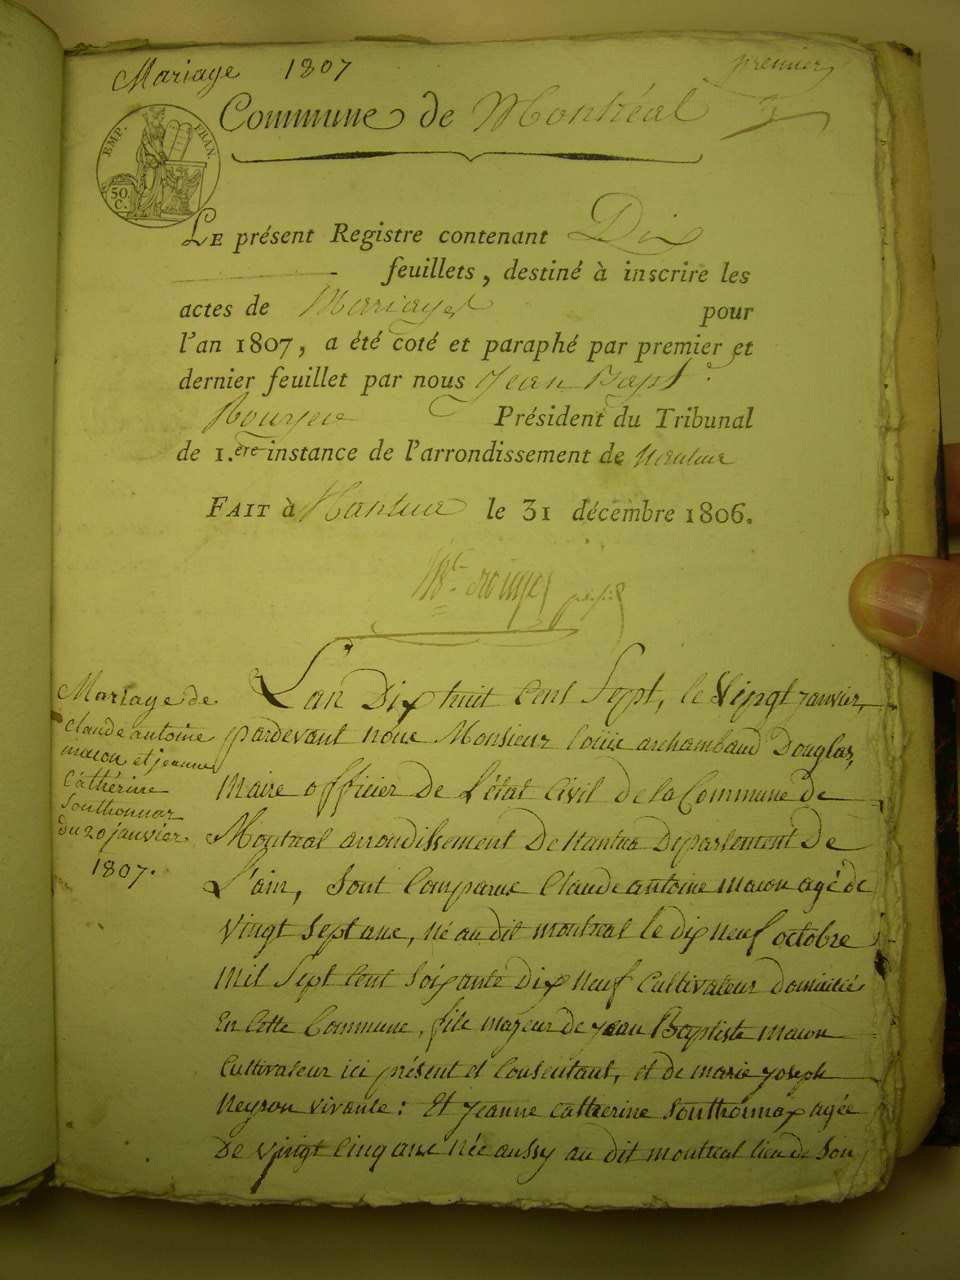 Mariage 1807
premier
Commune de Montréal
EMP. FRAN.
50. C.
LE présent Registre contenant Dix
feuillets, destiné à inscrire les
actes de Mariages pour
l'an 1807, a été coté et paraphé par premier et
dernier feuillet par nous Jean Bapt.e
Président du Tribunal
de 1.ère instance de l'arrondissement de Nantua
FAIT à Nantua le 31 décembre 1806.
Mariage de
Claude antoine
macon et jeanne
Cathérine
Southonnax
du 20 janvier
1807.
L'an Dix huit Cent Sept, le Vingt janvier,
pardevant nous Monsieur Louis archambaud Douglas,
Maire officier De L'état Civil de la Commune de
Montréal arrondissement De Nantua Département De
L'ain, Sont Comparus Claude antoine macon agé de
Vingt Sept ans, né au dit montréal le dix neuf octobre
mil Sept Cent Soixante Dix neuf Cultivateur domicilié
En Cette Commune, fils majeur de jean Baptiste macon
Cultivateur ici présent et Consentant, et de marie joseph
Neyron vivante : Et jeanne Catherine Southonnax agée
De Vingt Cinq ans née aussy au dit montréal lieu de Son